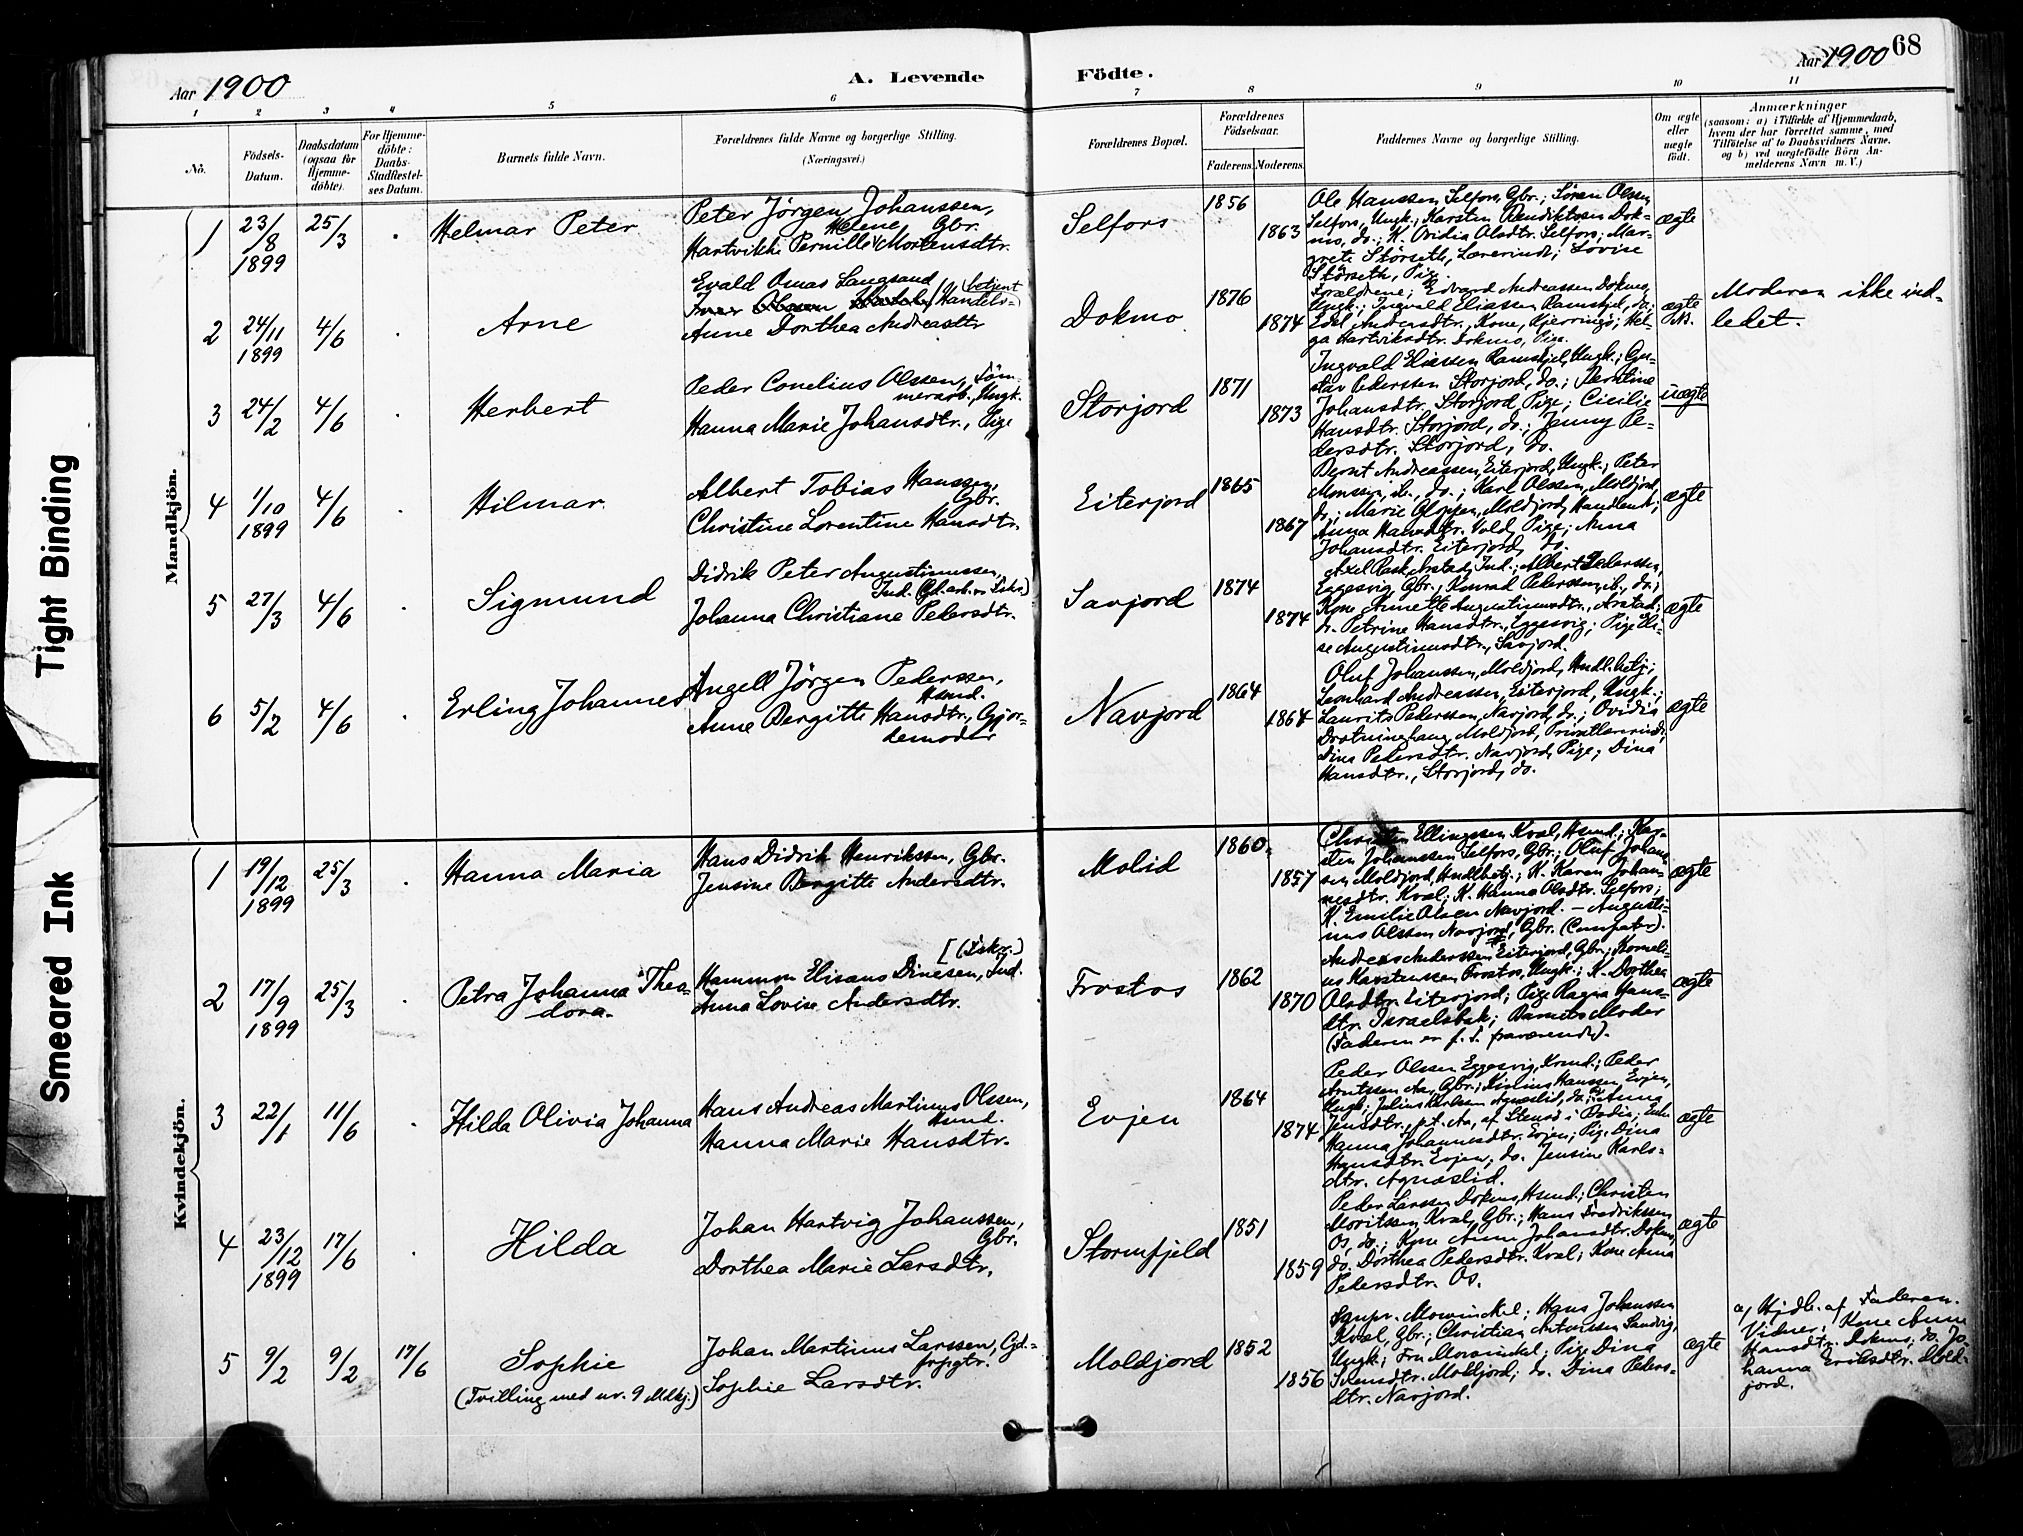 Tight Binding
Smeared Ink
Aar 1900
A. Levende
Födte.
Aar 1900
68
1 2 3 4 5 6 7 8 9 10 11
No.
Födsels-
Datum.
Daabsdatum
(ogsaa for
Hjemme-
döbte).
For Hjemme-
döbte:
Daabs-
Stadfæstel-
ses Datum.
Barnets fulde Navn.
Forældrenes fulde Navne og borgerlige Stilling.
(Næringsvei.)
Forældrenes Bopæl.
Forældrenes
Födselsaar.
Faderens.
Moderens.
Faddernes Navne og borgerlige Stilling.
Om ægte
eller
uægte
födt.
Anmærkninger
(saasom: a) i Tilfælde af Hjemmedaab,
hvem der har forrettet samme, med
Tilföielse af to Daabsvidners Navne,
og b) ved uægtefödte Börn An-
melderens Navn m. V.)
Mandkjön.
1
23/8
1899
25/3
Helmar Peter
Peter Jörgen Johanssen,
Helene Gbr.
Hartvikke Pernille Mortensdtr.
Selfors
1856
1863
Ole Hanssen Selfors, Gbr.; Sören Olssen
Selfors, Ungk.; Karsten Bendiktssen Dok-
mo, do.; K. Ovidia Olsdtr. Selfors; Mar-
grete Störseth, Lærerinde; Lovise
Störseth, Pige.
ægte
2
24/11
1899
4/6
Arne
Evald Omas Langsand
Handels-
betjent
Anne Dorthea Andreasdtr
Dokmo
1876
1874
Forældrene; Edvard Andreassen Dokmo,
Ungk.; Ingvald Eliassen Ramskjel, do.;
Edel Andersdtr., Kone, Kjerringö; Hel-
ga Hartviksdtr. Dokmo, Pige.
ægte
NB.
Moderen ikke ind-
ledet.
3
24/2
4/6
Herbert
Peder Conelius Olssen, Töm-
merarb., Ungk.
Hanna Marie Johansdtr., Pige
Storjord
1871
1873
Ingvald Eliassen Ramskjel, Ungk.; Gu-
stav Pederssen Storjord, do.; Berntine
Johansdtr. Storjord, Pige; Cicilie
Hansdtr. Storjord, do.; Jenny Pe-
dersdtr. Storjord, do.
uægte
4
1/10
1899
4/6
Hilmar
Albert Tobias Hanssen,
Gbr.
Christine Lorentine Hansdtr.
Eiterjord
1865
1867
Bernt Andreassen, Eiterjord, Ungk.; Peter
Monssen, ib., do.; Karl Olssen, Moldjord,
do.; Marie Olssen, Moldjord, Handlensk.;
Anna Hansdtr. Vold, Pige; Anna
Johansdtr. Eiterjord, do.
ægte
5
27/3
4/6
Sigmund
Didrik Peter Augustinussen,
Ind. Gd.arb. o. Fisker)
Johanna Christiane Petersdtr.
Savjord
1874
1874
Axel Rask Arstad, Ind.; Albert Pederssen,
Eggesvig, Gbr.; Konrad Pederssen, ib., do.;
Kone Annette Augustinusdtr., Arstad;
do. Petrine Hansdtr., Eggesvig; Pige Eli-
se Augustinusdtr., Savjord.
ægte
6
5/2
4/6
Erling Johannes
Angell Jörgen Pederssen,
Hsmd.
Anne Bergitte Hansdtr., Gjor-
demoder
Navjord
1864
1864
Oluf Johanssen, Moldjord, Handl.betj.;
Leonhard Andreassen, Eiterjord, Ungk.;
Laurits Pederssen, Navjord, do.; Ovidia
Drotninghaug, Moldjord, Privatlærerinde;
Dina Pedersdtr. Navjord, Pige; Dina
Hansdtr., Storjord, do.
ægte
Kvindekjön.
1
19/12
1899
25/3
Hanna Maria
Hans Didrik Henrikssen, Gbr.
Jensine Bergitte Andersdtr.
Molid
1860
1857
Christen Ellingssen Kval, Hsmd.; Kar-
sten Johanssen Selfors, Gbr.; Oluf Johans-
sen Moldjord, Handl.betj.; K. Karen Johan-
nesdtr. Kval; K. Hanna Olsdtr. Selfors;
K. Emilie Olsen Navjord. – Augusti-
nus Olssen Navjord, Gbr.
ægte
2
17/9
1899
25/3
Petra Johanna Thea-
dora.
[(Fskr.)
Hammon Elisæus Dinesen, Ind.
Anna Lovise Andersdtr.
Frostos
1862
1870
Andreas Anderssen Eiterjord, Gbr.; Korneli-
us Karstenssen Frostos, Ungk.; K. Dorthea
Olsdtr. Eiterjord; Pige Ragna Hans-
dtr. Israelsbak; Barnets Moder
(Faderen er f. T. fraværende).
ægte
3
22/1
11/6
Hilda Olivia Johanna
Hans Andreas Martinus Olssen,
Hsmd.
Hanna Marie Hansdtr.
Evjen
1864
1874
Peder Olssen Eggesvig, Hsmd.; Peder
Arntssen Aa, Gbr.; Hanssen, Evjen,
Ungk.; Julius Karlssen Agnaslid, do.; Anna
Jensdtr., pt. Aa, af Stensö i Bodin;
Hanna Johannesdtr. Evjen; Pige Dina
Hansdtr. Evjen; do. Jensine Karls-
dtr. Agnaslid.
ægte
4
23/12
1899
17/6
Hilda
Johan Hartvig Johanssen,
Gbr.
Dorthea Marie Larsdtr.
Stormfjeld
1851
1859
Peder Larssen Dokmo, Hsmd.; Christen
Moritssen Kval, Gbr.; Hans Fredrikssen
Os, do.; Kone Anne Johansdtr. Dokmo,
do. Dorthea Pedersdtr. Kval; Kone Anna
Pedersdtr. Os.
ægte
5
9/2
9/2
17/6
Sophie
(Tvilling med nr. 9 Mdkj.)
Johan Martinus Larssen, Gd.-
frpgtr.
Sophie Larsdtr.
Moldjord
1852
1856
Sgnpr. Mowinckel; Hans Johanssen
Kval, Gbr.; Christian Antonssen Sandvig,
Ungk.; Fru Mowinckel; Pige Dina
Moldjord; do. Dina Peders-
dtr. Navjord.
ægte
a) Hjdb. af Faderen.
Vidner: Kone Anne
Hansdtr. Dokmo; do. Jo-
hanna Eriksdtr. Mold-
jord.